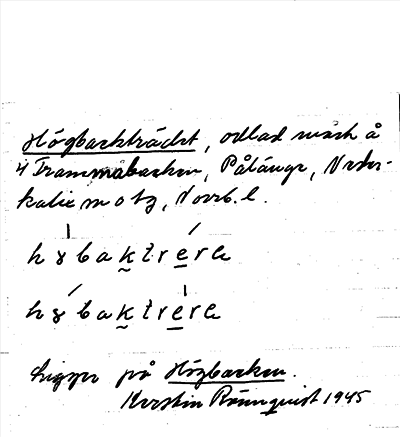 Högbackträdet, odlad mark å
4 Trammabacken, Pålänge, Neder-
kalix m o tg, Norrb. l.
hɤbaktrera
hɤbaktrera
Ligger på Högbacken.
Kerstin Rönnquist 1945